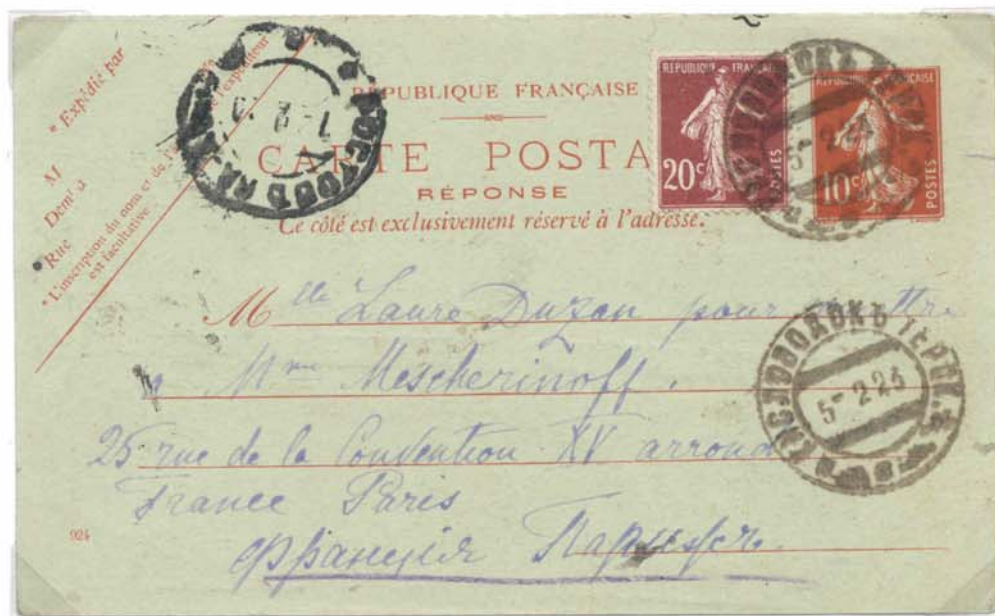 * Expédié par
M
Dem<sup>t</sup> à
Rue
* L'inscription du nom et de l'
est facultative.
l'expéditeur
RÉPUBLIQUE FRANÇAISE
CARTE POSTA
RÉPONSE
Ce côté est exclusivement réservé à l'adresse.
RÉPUBLIQUE FRANÇAISE
20c
POSTES
RÉPUBLIQUE FRANÇAISE
10c
POSTES
КИСЛОВОДСКЪ ТЕРСК.
5-2 23
M<sup>lle</sup> Laure Duzan pour
Mme Mescherinoff.
25 rue de la Convention XV arrond
France Paris
Франція Парижъ.
924